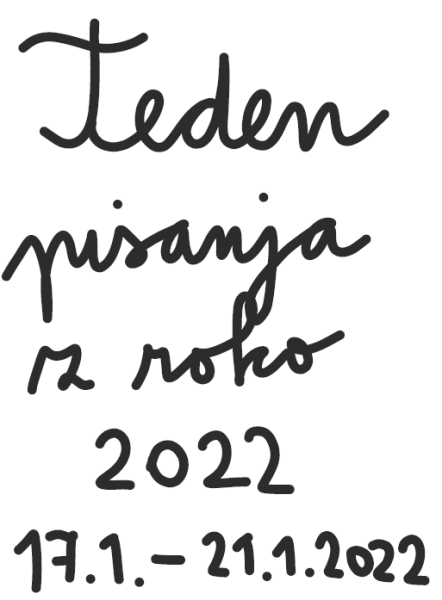 Teden
pisanja
z roko
2022
17.1.-21.1.2022